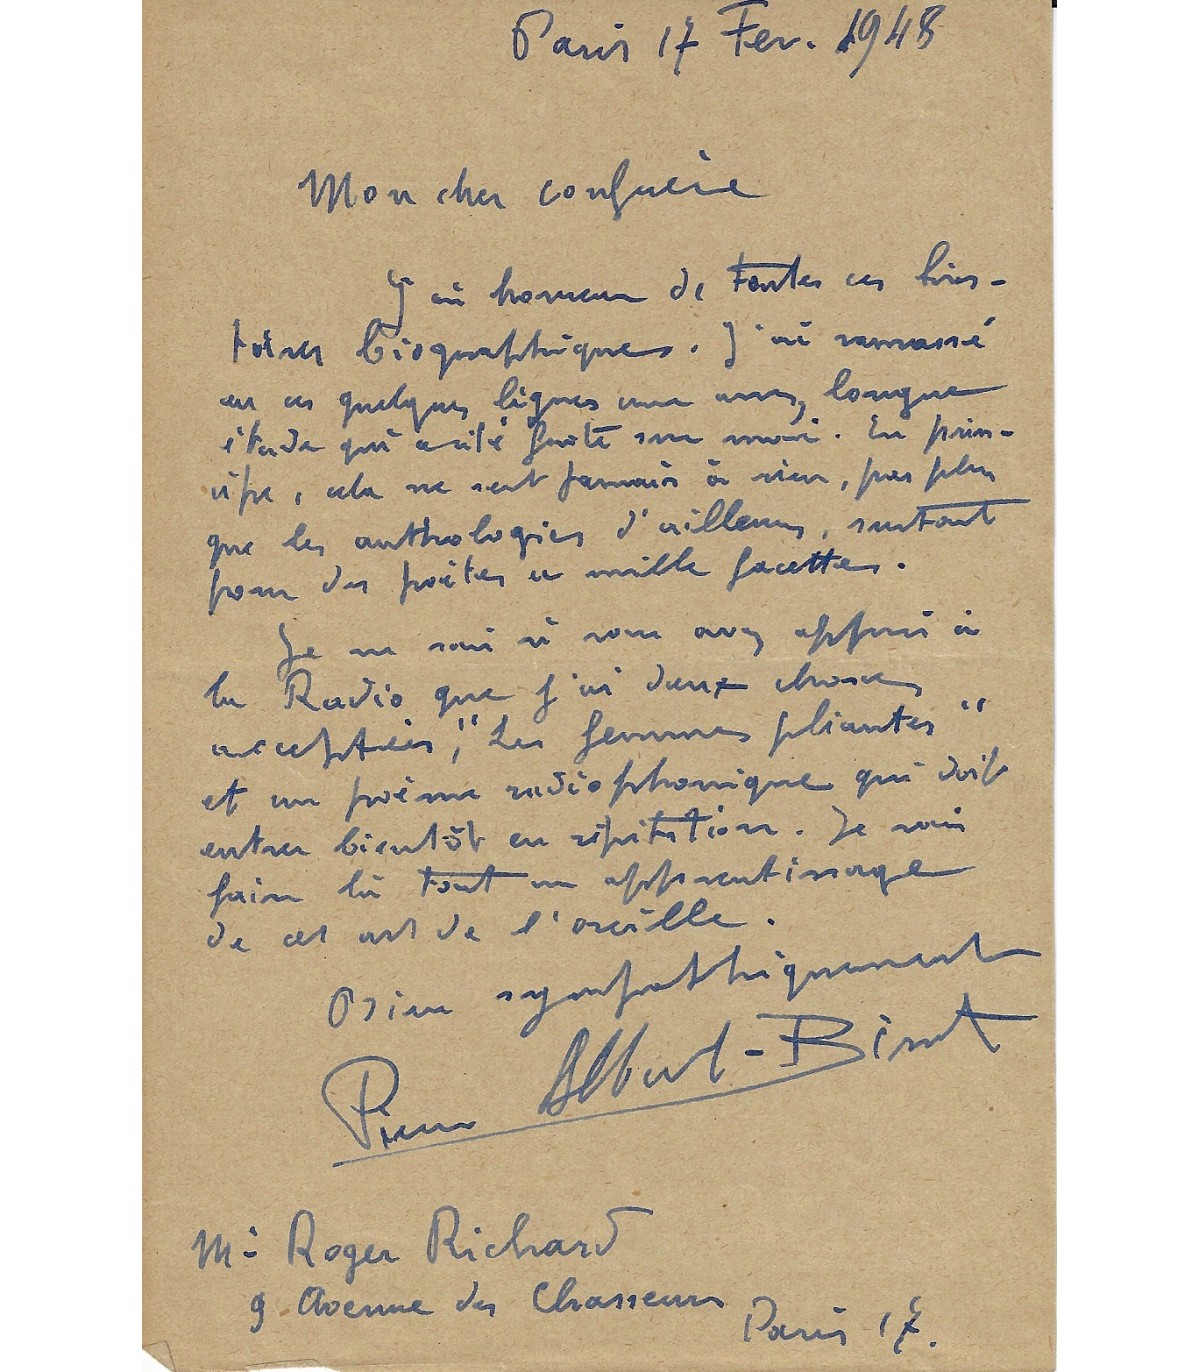 Paris 17 Fev. 1948
Mon cher confrère
J'ai horreur de toutes ces his-
toires biographiques. J'ai ramassé
en ces quelques lignes une assez longue
étude qui a été faite sur moi. En prin-
cipe, cela ne sert jamais à rien, pas plus
que les anthologies d'ailleurs, surtout
pour des poètes à mille facettes.
Je ne sais si vous avez appris à
la Radio que j'ai deux choses
acceptées, "Les femmes pliantes"
et un poème radiophonique qui doit
entrer bientôt en répétition. Je vais
faire là tout un apprentissage
de cet art de l'oreille.
Bien sympathiquement
Pierre Albert-Birot
Mr Roger Richard
9 Avenue des Chasseurs
Paris 17e.